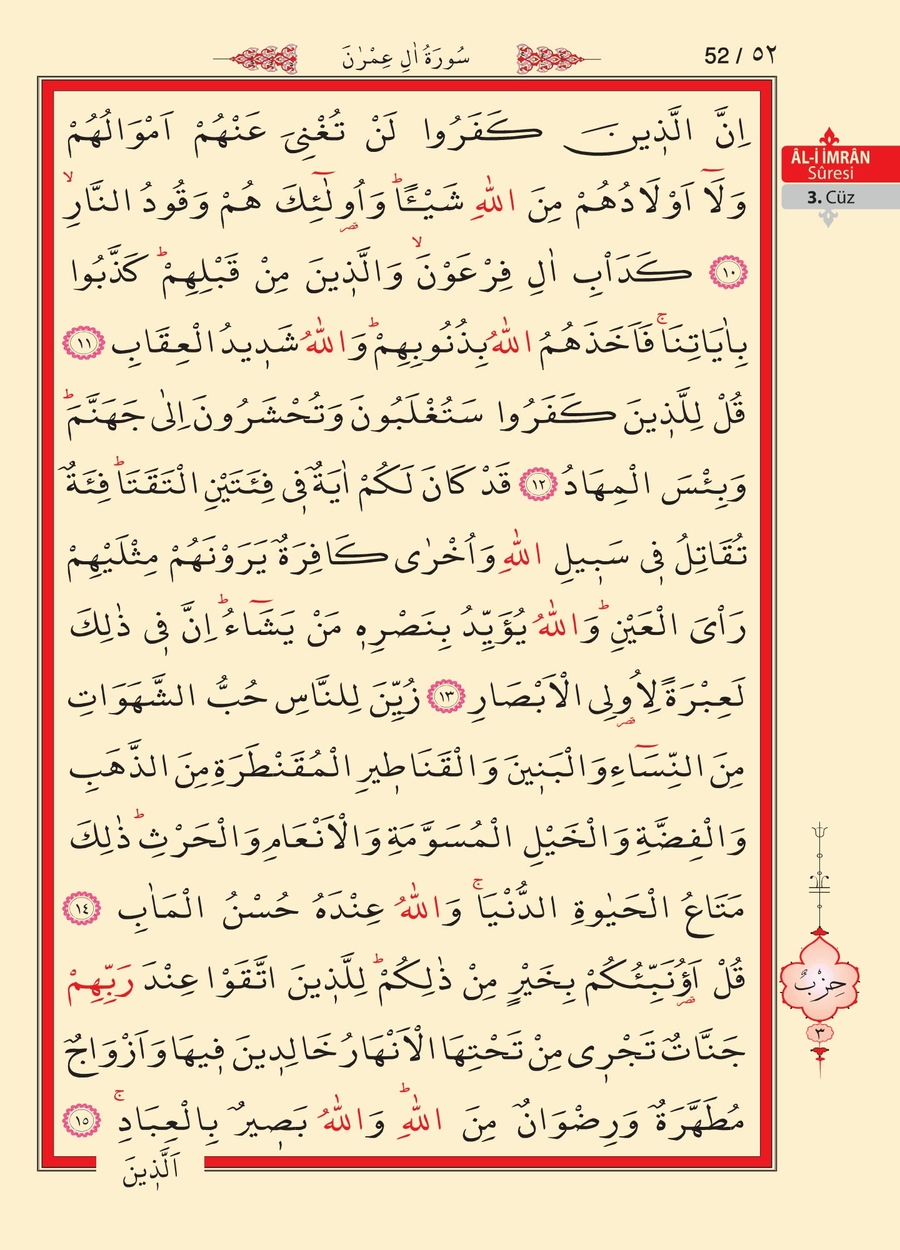 سُورَةُ اٰلِ عِمْرٰنَ
52 / ٥٢
ÂL-İ İMRÂN
Sûresi
3. Cüz
اِنَّ الَّذ۪ينَ كَفَرُوا لَنْ تُغْنِيَ عَنْهُمْ اَمْوَالُهُمْ
وَلَٓا اَوْلَادُهُمْ مِنَ اللّٰهِ شَيْـًٔاۜ وَاُو۬لٰٓئِكَ هُمْ وَقُودُ النَّارِۙ
﴿١٠﴾ كَدَأْبِ اٰلِ فِرْعَوْنَۙ وَالَّذ۪ينَ مِنْ قَبْلِهِمْۜ كَذَّبُوا
بِاٰيَاتِنَاۚ فَاَخَذَهُمُ اللّٰهُ بِذُنُوبِهِمْۜ وَاللّٰهُ شَد۪يدُ الْعِقَابِ ﴿١١﴾
قُلْ لِلَّذ۪ينَ كَفَرُوا سَتُغْلَبُونَ وَتُحْشَرُونَ اِلٰى جَهَنَّمَۜ
وَبِئْسَ الْمِهَادُ ﴿١٢﴾ قَدْ كَانَ لَكُمْ اٰيَةٌ ف۪ي فِئَتَيْنِ الْتَقَتَاۜ فِئَةٌ
تُقَاتِلُ ف۪ي سَب۪يلِ اللّٰهِ وَاُخْرٰى كَافِرَةٌ يَرَوْنَهُمْ مِثْلَيْهِمْ
رَأْيَ الْعَيْنِۜ وَاللّٰهُ يُؤَيِّدُ بِنَصْرِه۪ مَنْ يَشَٓاءُۜ اِنَّ ف۪ي ذٰلِكَ
لَعِبْرَةً لِاُو۬لِي الْاَبْصَارِ ﴿١٣﴾ زُيِّنَ لِلنَّاسِ حُبُّ الشَّهَوَاتِ
مِنَ النِّسَٓاءِ وَالْبَن۪ينَ وَالْقَنَاط۪يرِ الْمُقَنْطَرَةِ مِنَ الذَّهَبِ
وَالْفِضَّةِ وَالْخَيْلِ الْمُسَوَّمَةِ وَالْاَنْعَامِ وَالْحَرْثِۜ ذٰلِكَ
مَتَاعُ الْحَيٰوةِ الدُّنْيَاۚ وَاللّٰهُ عِنْدَهُ حُسْنُ الْمَاٰبِ ﴿١٤﴾
قُلْ اَؤُ۬نَبِّئُكُمْ بِخَيْرٍ مِنْ ذٰلِكُمْۜ لِلَّذ۪ينَ اتَّقَوْا عِنْدَ رَبِّهِمْ
جَنَّاتٌ تَجْر۪ي مِنْ تَحْتِهَا الْاَنْهَارُ خَالِد۪ينَ ف۪يهَا وَاَزْوَاجٌ
مُطَهَّرَةٌ وَرِضْوَانٌ مِنَ اللّٰهِۜ وَاللّٰهُ بَص۪يرٌ بِالْعِبَادِۚ ﴿١٥﴾
اَلَّذ۪ينَ
حِزْبٌ
٣